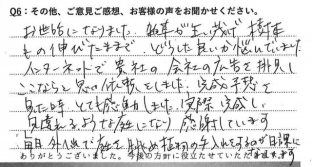 Q6：その他、ご意見ご感想、お客様の声をお聞かせください。
お世話になりました。雑草が生い茂げ 樹木
もの伸びたままで どうしたら良いか悩んでいました
インターネットで貴社の会社の広告を拝見し
ここならと思い依頼としました。完成予想を
見た時 とても感動しました。実際完成し
見違えるような庭になり感謝しています
毎日 外へ出て庭を眺め植物の手入れをするのが日課に
ありがとうございました。今後の方針に役立たせていただきます